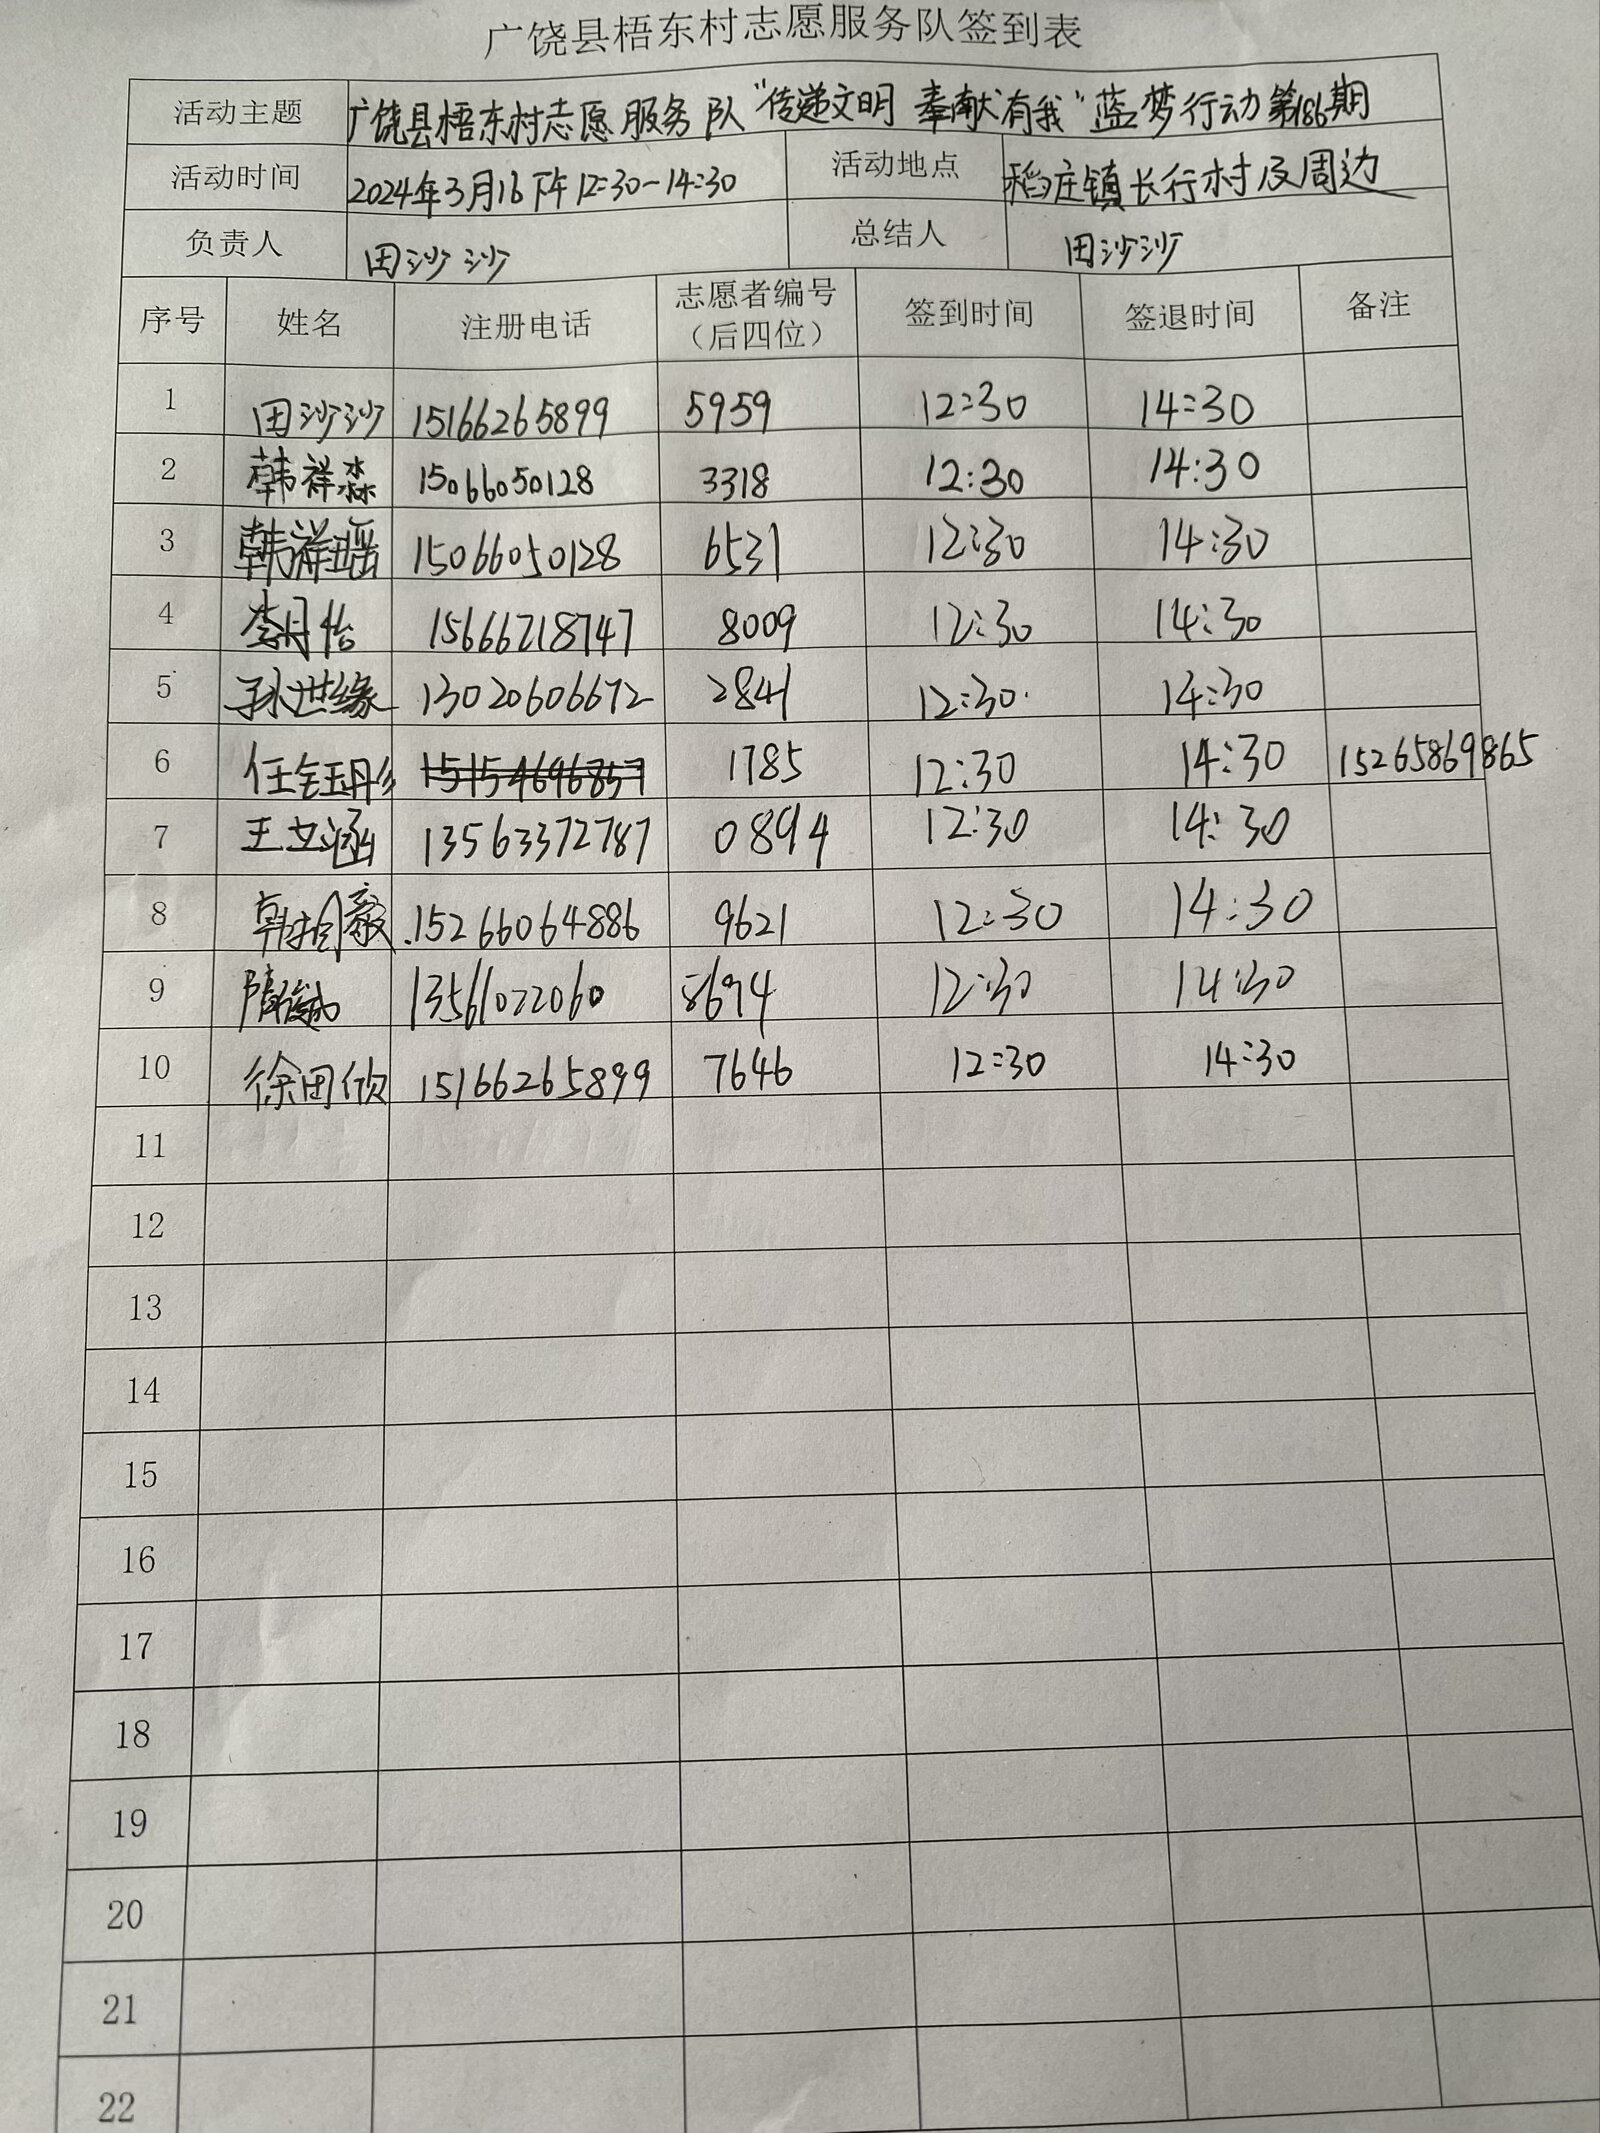 广饶县梧东村志愿服务队签到表
活动主题 广饶县梧东村志愿服务队“传递文明 奉献有我”蓝梦行动第186期
活动时间 2024年3月16下午12:30-14:30 活动地点 稻庄镇长行村及周边
负责人 田沙沙 总结人 田沙沙
序号 姓名 注册电话 志愿者编号（后四位） 签到时间 签退时间 备注
1 田沙沙 15166265899 5959 12:30 14:30
2 韩祥淼 15066050128 3318 12:30 14:30
3 韩祥瑶 15066050128 6531 12:30 14:30
4 李月怡 15666718747 8009 12:30 14:30
5 孙世缘 13020606672 2841 12:30 14:30
6 任钰丹 15154696857 1785 12:30 14:30 15265869865
7 王文涵 13563372787 0894 12:30 14:30
8 15266064886 9621 12:30 14:30
9 13561022060 8694 12:30 14:30
10 徐田欣 15166265899 7646 12:30 14:30
11
12
13
14
15
16
17
18
19
20
21
22